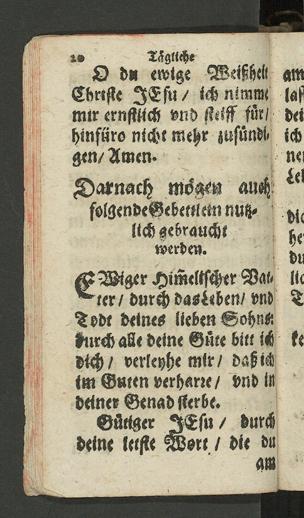 20 Tägliche
O du ewige Weißheit
Christe JEsu / ich nimme
mir ernstlich vnd steiff für /
hinfüro nicht mehr zusündi-
gen / Amen.
Darnach mögen auch
folgende Gebettlein nutz-
lich gebraucht
werden.
EWiger Him̃elischer Vat-
ter / durch das Leben / vnd
Todt deines lieben Sohns:
durch alle deine Güte bitt ich
dich / verleyhe mir / daß ich
im Guten verharre / vnd in
deiner Genad sterbe.
Gütiger JEsu / durch
deine letste Wort / die du
am